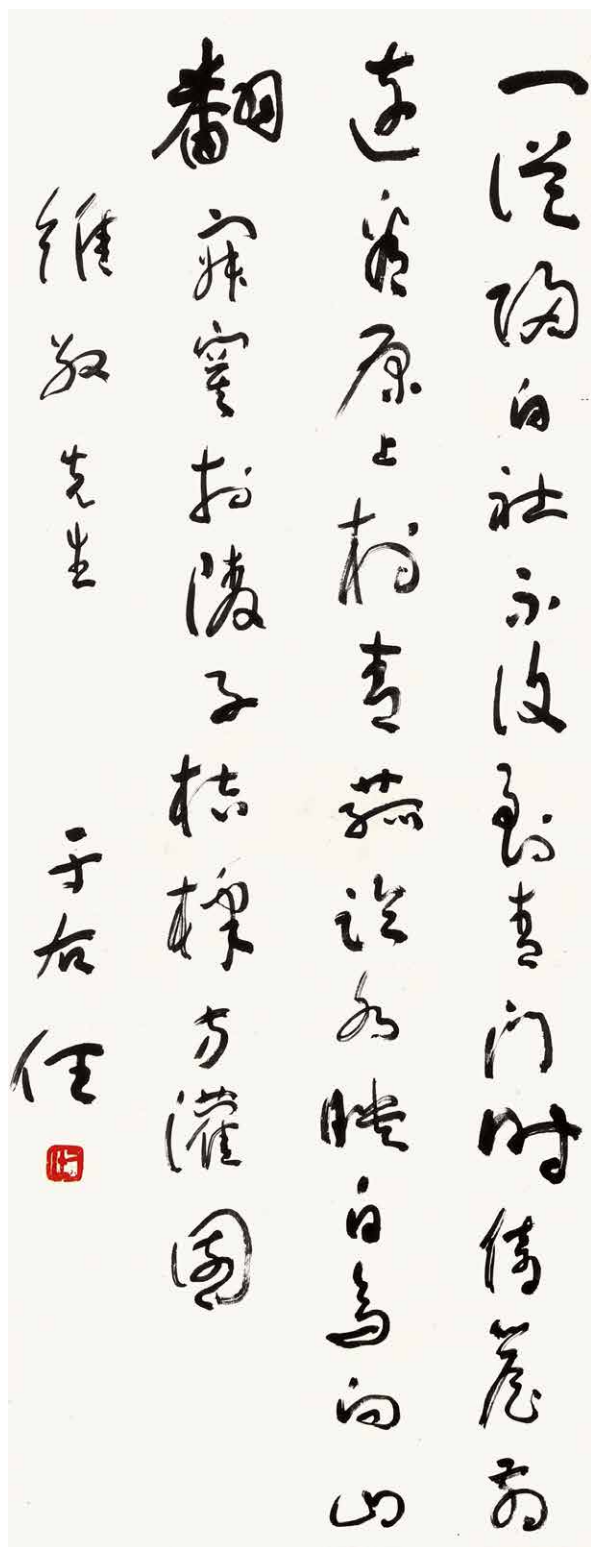 一從歸白社不復到青門時倚簷前
遠看原上村青菰臨水映白鳥向山
翻寂寞於陵子桔槔方灌園
維敬先生
于右任